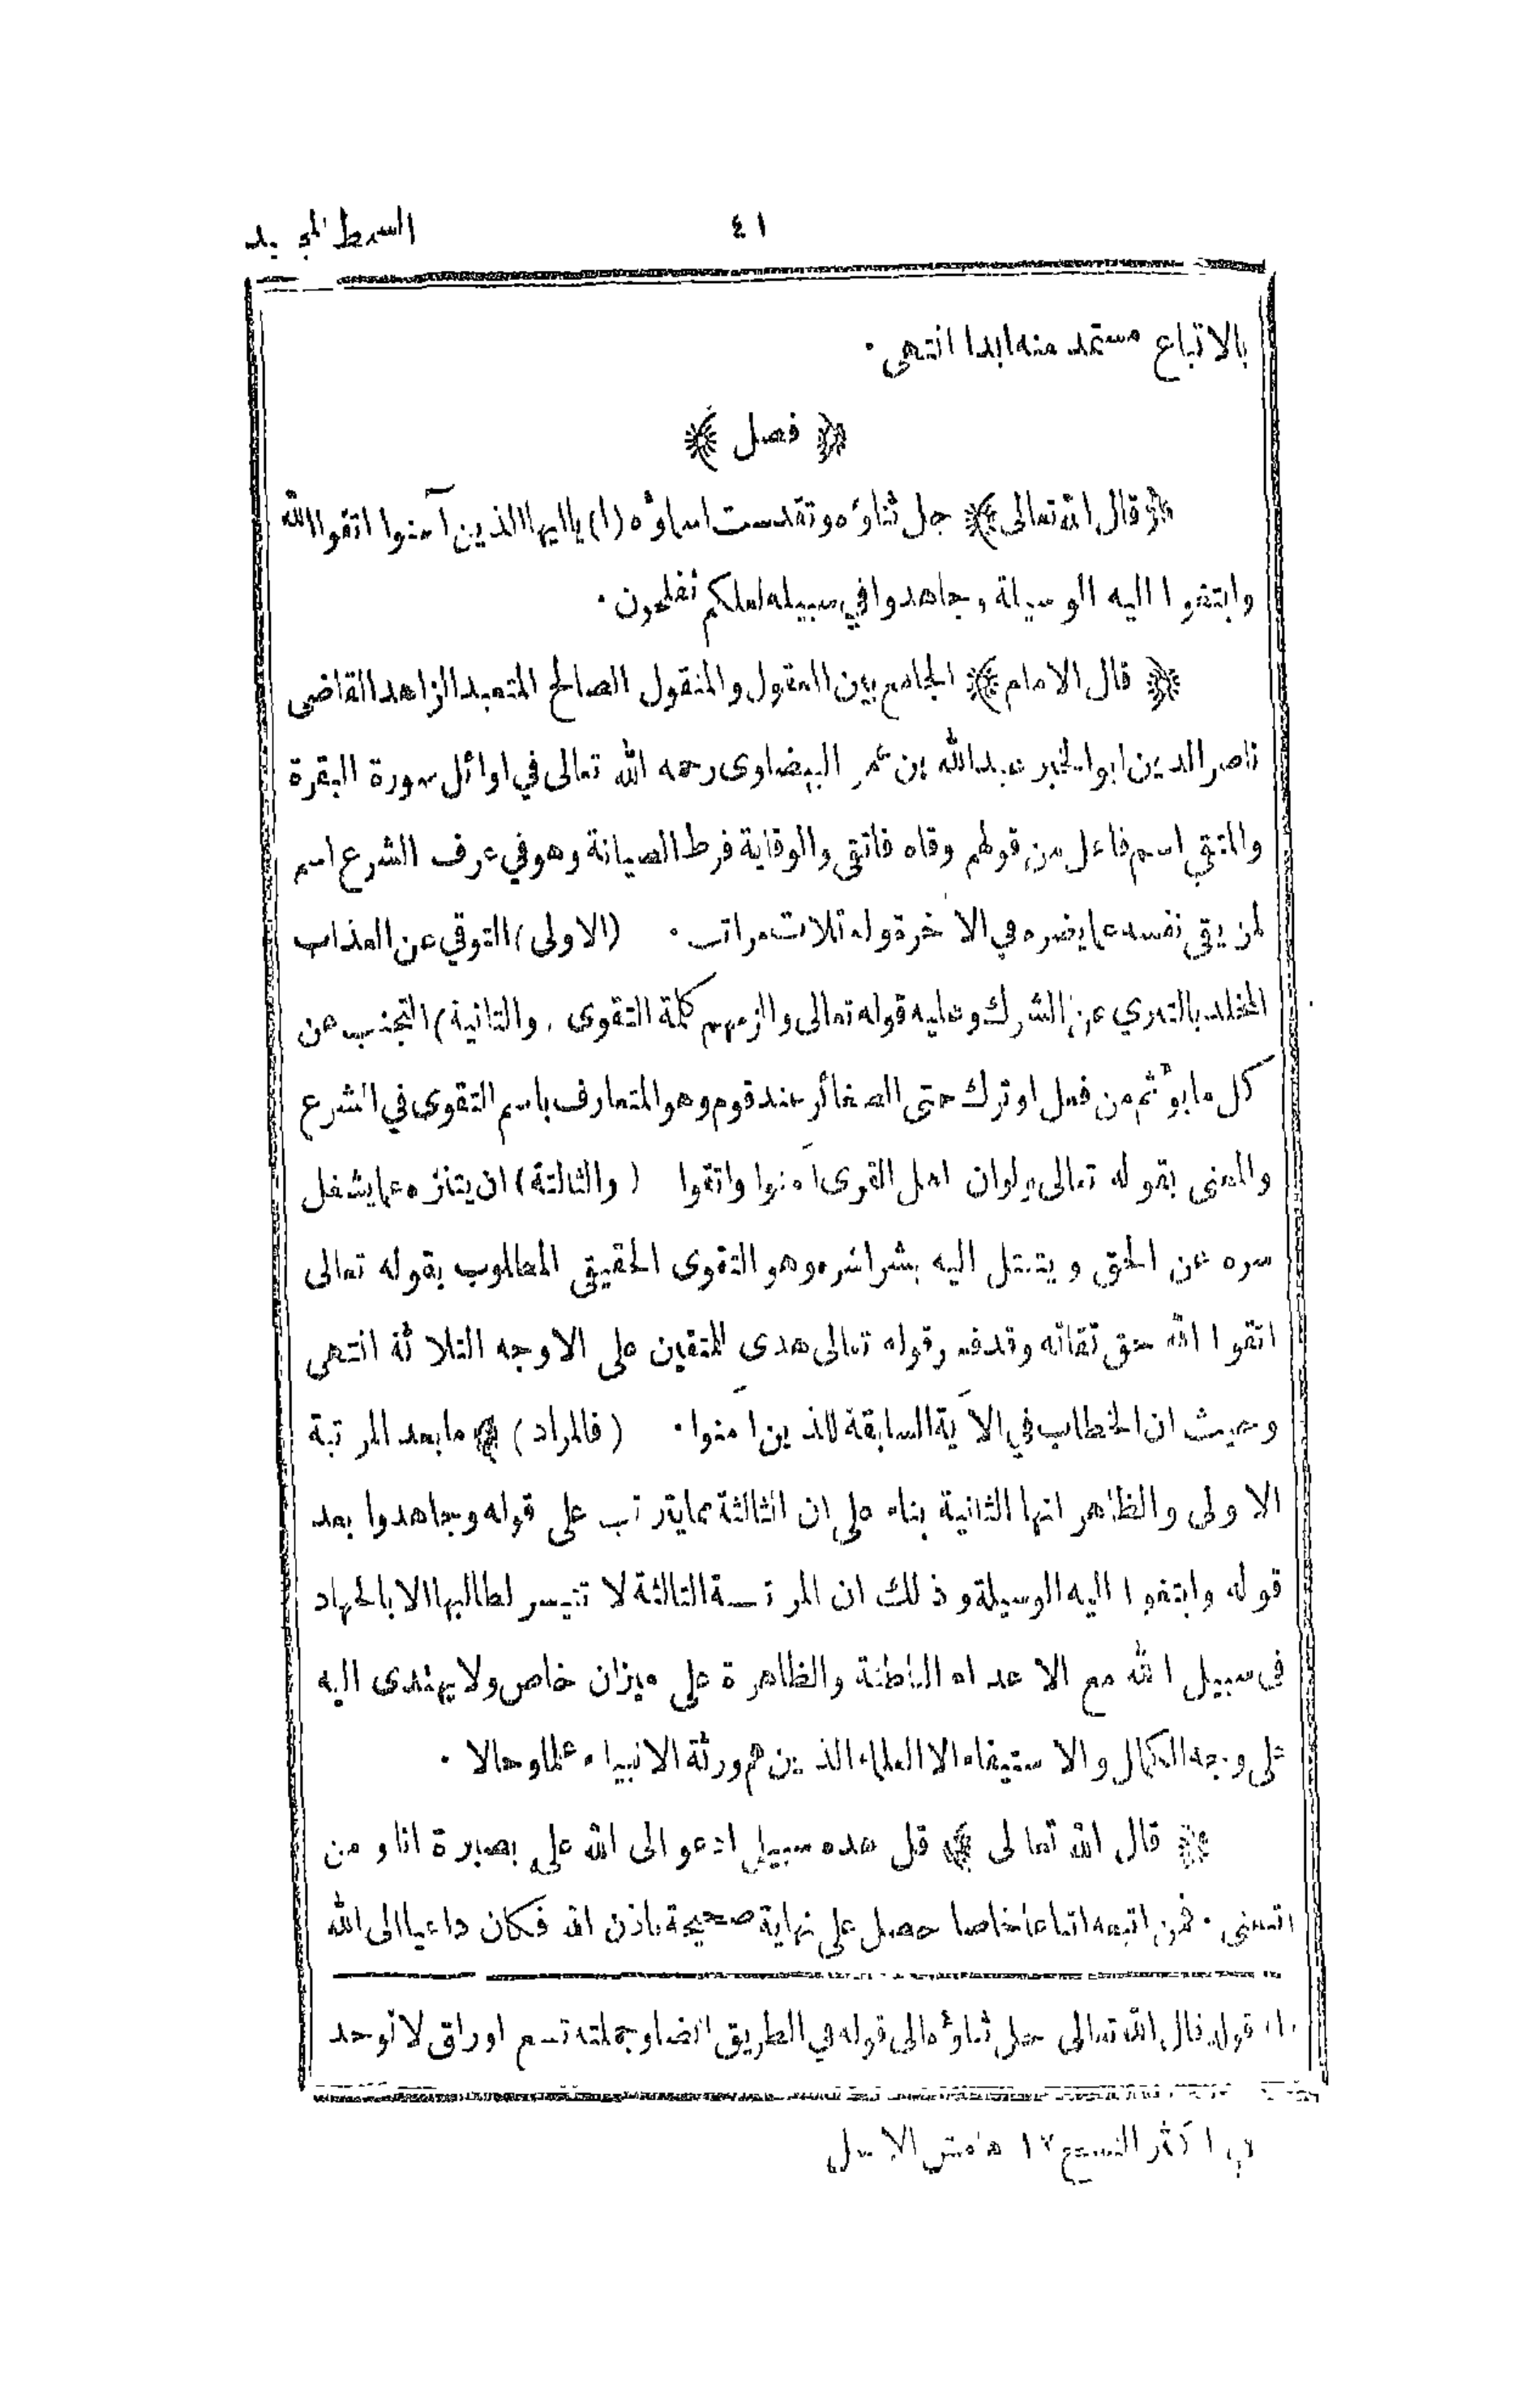 ٤١ السمط المجيد
بالاتباع مستمد منه ابدا انتهى ·
﴿ فصل ﴾
﴿ قال الله تعالى ﴾ جل ثناؤه وتقدست اسماؤه (١) يا ايها الذين آمنوا اتقوا الله
وابتغوا اليه الوسيلة وجاهدوا في سبيله لعلكم تفلحون ·
﴿ قال الامام ﴾ الجامع بين المعقول والمنقول الصالح المتعبد الزاهد القاضى
ناصر الدين ابو الخير عبد الله بن عمر البيضاوى رحمه الله تعالى في اوائل سورة البقرة
والمتقي اسم فاعل من قولهم وقاه فاتقى والوقاية فرط الصيانة وهو في عرف الشرع اسم
لمن يقي نفسه عما يضره في الآخرة وله ثلاث مراتب · (الاولى) التوقي عن العذاب
المخلد بالتبري عن الشرك وعليه قوله تعالى والزمهم كلمة التقوى · والثانية) التجنب عن
كل ما يؤثم من فعل او ترك حتى الصغائر عند قوم وهو المتعارف باسم التقوى في الشرع
والمعنى بقوله تعالى ولو ان اهل القرى آمنوا واتقوا (والثالثة) ان يتنزه عما يشغل
سره عن الحق ويتبتل اليه بشراشره وهو التقوى الحقيقي المطلوب بقوله تعالى
اتقوا الله حق تقاته وقد فسر قوله تعالى هدى للمتقين على الاوجه الثلاثة انتهى
وحيث ان الخطاب في الآية السابقة للذين آمنوا · (فالمراد) ما بعد المرتبة
الاولى والظاهر انها الثانية بناء على ان الثالثة مما يترتب على قوله وجاهدوا بعد
قوله وابتغوا اليه الوسيلة وذلك ان المرتبة الثالثة لا تتيسر لطالبها الا بالجهاد
فى سبيل الله مع الاعداء الباطنة والظاهرة على ميزان خاص ولا يهتدى اليه
على وجه الكمال والاستيفاء الا العلماء الذين هم ورثة الانبياء علما وحالا ·
﴿ قال الله تعالى ﴾ قل هذه سبيلي ادعو الى الله على بصيرة انا ومن
اتبعنى · فمن اتبعه اتباعا خاصا حصل على نهاية صحيحة باذن الله فكان داعيا الى الله
(١) قوله قال الله تعالى جل ثناؤه الى قوله في الطريق ايضا وجملته تسع اوراق لا توجد
في اكثر النسخ ١٢ هامش الاصل